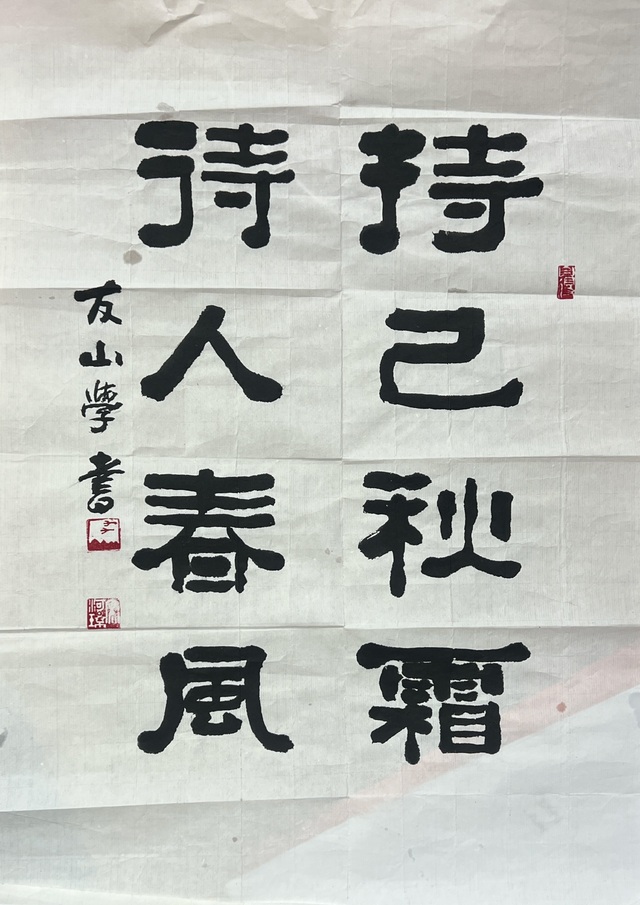 持己秋霜
待人春風
友山學書